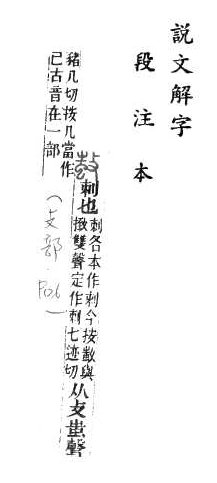 說文解字
段注本
刺也
刺各本作剌今按與
雙聲定作刺七迹切
从攴蚩聲
豬几切按几當作
己古音在一部
（攴部 P26）